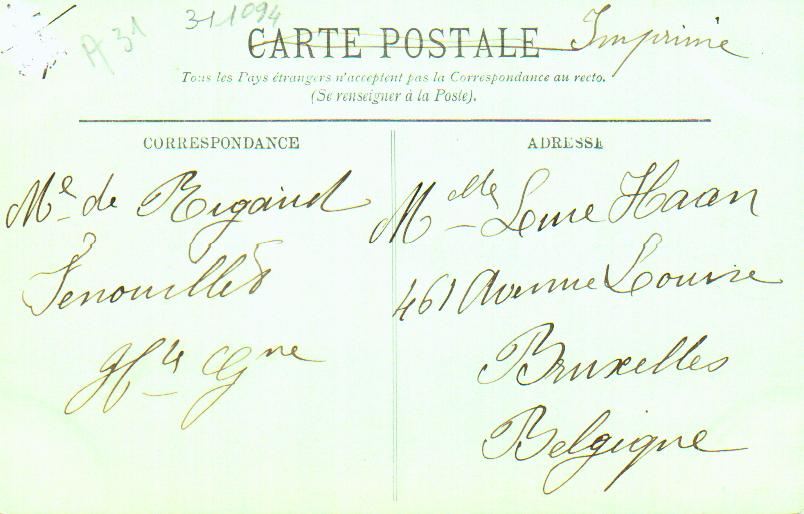 A 31
311094
CARTE POSTALE Imprimé
Tous les Pays étrangers n'acceptent pas la Correspondance au recto.
(Se renseigner à la Poste).
CORRESPONDANCE
Me de Rigaud
Fenouillet
Hte Gne
ADRESSE
Mlle Haan
461 Avenue Louise
Bruxelles
Belgique